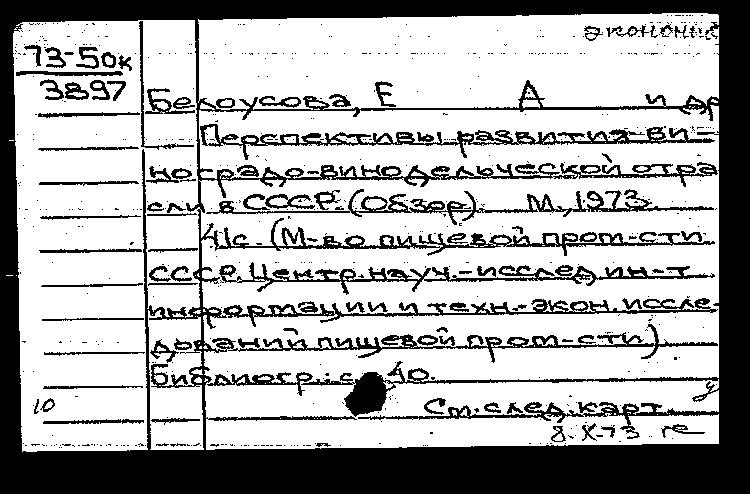 экономик
73-50к
3897
Белоусова, Е А и др
Перспективы развития ви-
ноградо-винодельческой отра
сли в СССР. (Обзор). М., 1973.
41с. (М-во пищевой пром-сти
СССР. Центр. науч.-исслед. ин-т
информации и техн.-экон. иссле-
дований пищевой пром-сти).
Библиогр.: с. 40.
10
См. след. карт.
8.X-73